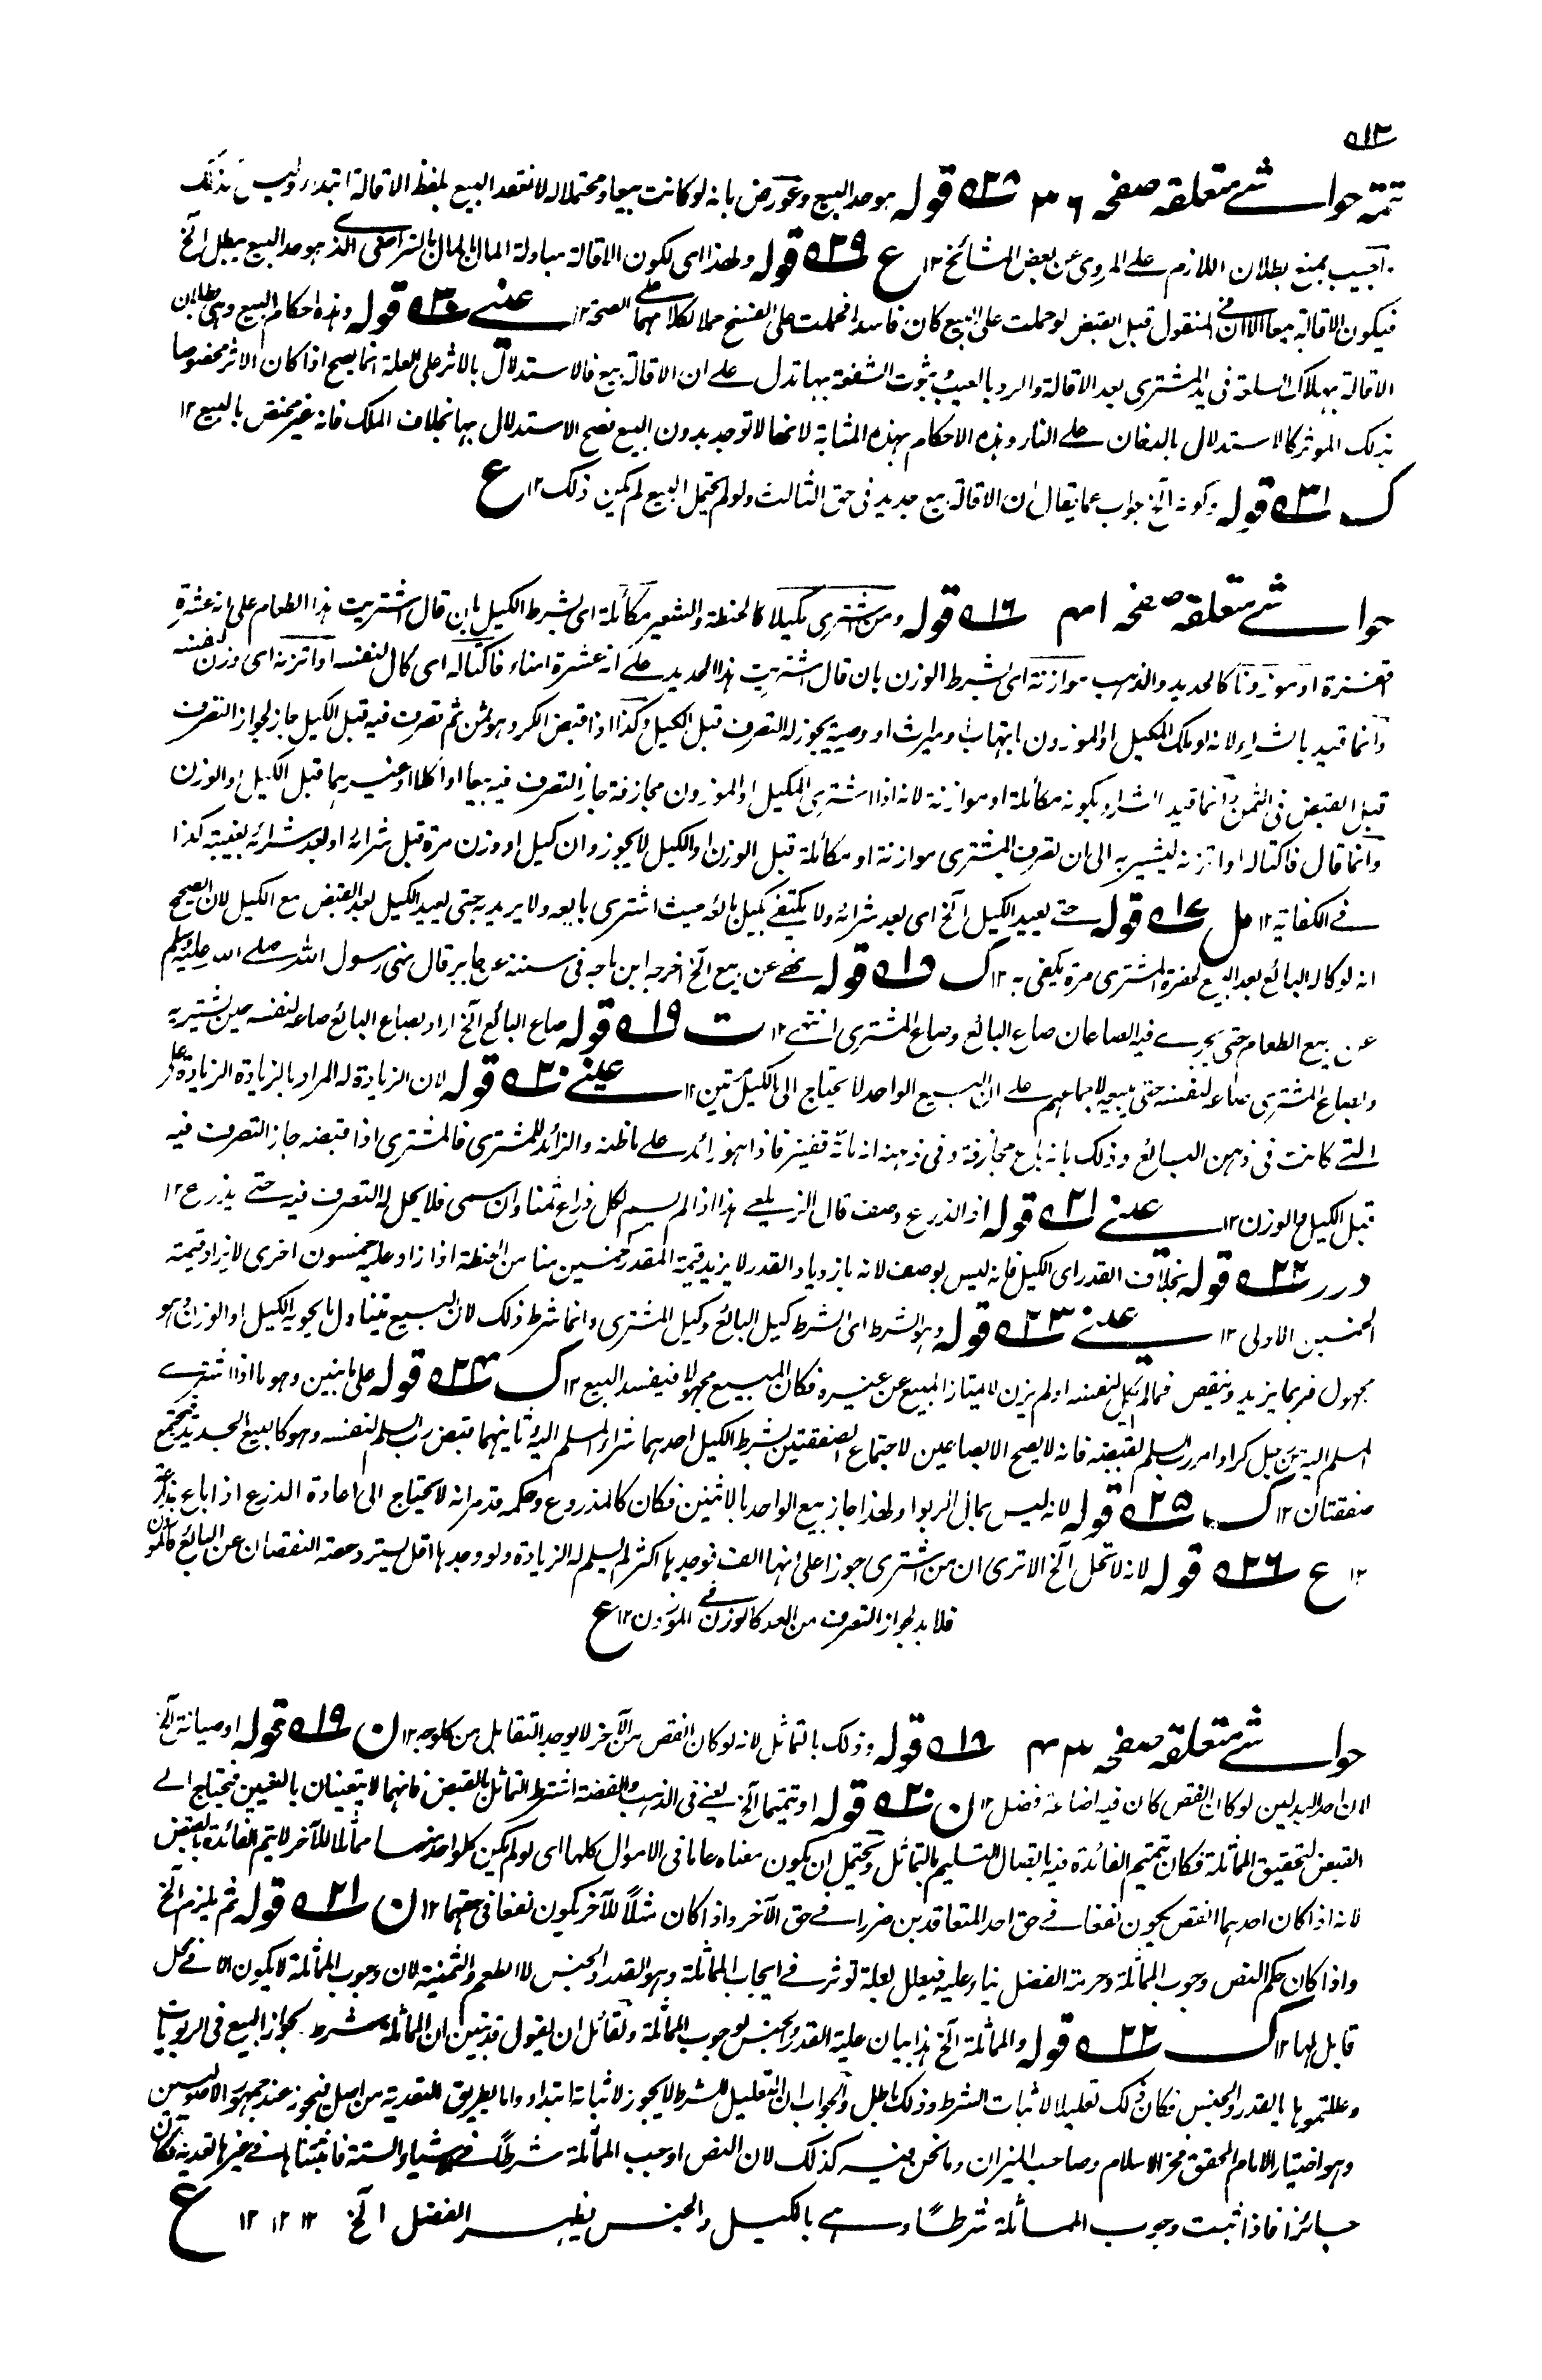 ۵۱۲
تتمه حواشي متعلقه صفحه ۳۶ ۲۸ قوله هو حد البيع وعورض بانه لو كانت بيعا ومحتملا له لانعقد البيع بلفظ الاقالة ابتداء وليس كذلك
واجيب بمنع بطلان اللازم على المروى عن بعض المشائخ ۱۲ ع ۲۹ قوله ولهذا اى لكون الاقالة مبادلة المال بالمال بالتراضى الذى هو حد البيع يبطل الخ
فيكون الاقالة بيعا الا ان في المنقول قبل القبض لو حملت على البيع كان فاسدا فحملت على الفسخ حملا لكلامهما على الصحة ۱۲ عيني ۳۰ قوله وهذه احكام البيع وهى بطلان
الاقالة بهلاك السلعة فى يد المشترى بعد الاقالة والرد بالعيب وثبوت الشفعة بها تدل على ان الاقالة بيع فالاستدلال بالاثر على العلة انما يصح اذا كان الاثر مخصوصا
بذلك الموثر كالاستدلال بالدخان على النار وهذه الاحكام بهذه المثابة لانها لا توجد بدون البيع فصح الاستدلال بها بخلاف الملك فانه غير مختص بالبيع ۱۲
ك ۳۱ قوله وكونه الخ جواب عما يقال ان الاقالة بيع جديد فى حق الثالث ولو لم يحتمل البيع لم يكن ذلك ۱۲ ع
حواشي متعلقه صفحه ۴۱ ۱۶ قوله ومن اشترى مكيلا كالحنطة والشعير مكائلة اى بشرط الكيل بان قال اشتريت هذا الطعام على انه عشرة
اقفزة او موزونا كالحديد والذهب موازنة اى بشرط الوزن بان قال اشتريت هذا الحديد على انه عشرة امناء فاكتاله اى كال لنفسه او اتزنه اى وزن لنفسه
وانما قيد بالشراء لانه لو ملك المكيل او الموزون بهبة او ميراث او وصية يجوز له التصرف قبل الكيل وكذا اذا قبض الكر وهو ثمن ثم تصرف فيه قبل الكيل جاز لجواز التصرف
قبل القبض فى الثمن وانما قيد الشراء بكونه مكائلة او موازنة لانه اذا اشترى المكيل او الموزون مجازفة جاز التصرف فيه بيعا او اكلا او غيرهما قبل الكيل او الوزن
وانما قال فاكتاله او اتزنه ليشير به الى ان تصرف المشترى موازنة او مكائلة قبل الوزن او الكيل لا يجوز وان كيل او وزن مرة قبل شرائه او بعد شرائه بغيبته كذا
في الكفاية ۱۲ مل ۱۷ قوله حتى يعيد الكيل الخ اى بعد شرائه ولا يكتفى بكيل بائعه حيث اشترى بايعه ولا يريد به حتى يعيد الكيل بعد القبض مع الكيل لان الصحيح
انه لو كاله البائع بعد البيع لحضرة المشترى مرة يكفى به ۱۲ ك ۱۸ قوله نهى عن بيع الخ اخرجه ابن ماجه فى سننه عن جابر قال نهى رسول الله صلى الله عليه وسلم
عن بيع الطعام حتى يجرى فيه الصاعان صاع البائع وصاع المشترى انتهى ۱۲ ت ۱۹ قوله صاع البائع الخ اراد بصاع البائع صاعه لنفسه حين يشتريه
وبصاع المشترى صاعه لنفسه حتى يبيعه لاجماعهم على ان البيع الواحد لا يحتاج الى الكيل مرتين ۱۲ عيني ۲۰ قوله لان الزيادة له المراد بالزيادة الزيادة على
التى كانت فى ذهن البائع وذلك بانه باع مجازفة وفى ذهنه انه مائة قفيز فاذا هو زائد على ما ظنه والزائد للمشترى فالمشترى اذا قبضه جاز التصرف فيه
قبل الكيل والوزن ۱۲ عيني ۲۱ قوله اذ الذرع وصف قال الزيلعى هذا اذا لم يسم لكل ذراع ثمنا وان سمى فلا يحل له التصرف فيه حتى يذرع ۱۲
درر ۲۲ قوله بخلاف القدر اى الكيل فانه ليس بوصف لانه بازدياد القدر لا يزيد قيمة المقدر خمسين منا من الحنطة اذا زاد عليه خمسون اخرى لا يزاد قيمته
الخمسين الاولى ۱۲ عيني ۲۳ قوله وهو الشرط اى الشرط كيل البائع وكيل المشترى وانما شرط ذلك لان البيع يتناول ما يحويه الكيل او الوزن وهو
مجهول فربما يزيد وينقص فما لم يكل لنفسه او لم يزن لا يمتاز المبيع عن غيره فكان المبيع مجهولا فيفسد البيع ۱۲ ك ۲۴ قوله على ما نبين وهو ما اذا اشترى
المسلم اليه من رجل كرا وامر رب السلم بقبضه فانه لا يصح الا بصاعين لاجتماع الصفقتين بشرط الكيل احدهما شراء المسلم اليه وثانيهما قبض رب السلم لنفسه وهو كالبيع الجديد فيجتمع
صفقتان ۱۲ ك ۲۵ قوله لانه ليس بمال الربوا ولهذا جاز بيع الواحد بالاثنين فكان كالمذروع وحكمه قد مر انه لا يحتاج الى اعادة الذرع اذا باع مذارعة
۱۲ ع ۲۶ قوله لانه لا تحل الخ الا ترى ان من اشترى جوزا على انها الف فوجدها اكثر لم يسلم له الزيادة ولو وجدها اقل يسترد حصة النقصان عن البائع كالموزون
فلا بد لجواز التصرف من العد كالوزن في الموزون ۱۲ ع
حواشي متعلقه صفحه ۴۳ ۱۸ قوله وذلك بالتماثل لانه لو كان انقص من الآخر لا يوجد التقابل من كل وجه ۱۲ ن ۱۹ قوله او صيانة الخ
لان احد البدلين لو كان انقص كان فيه اضاعة فضل ۱۲ ن ۲۰ قوله او تتميما الخ يعنى فى الذهب والفضة اشترط التماثل بالقبض فانهما لا يتعينان بالتعيين فيحتاج الى
القبض لتحقيق المماثلة فكان تتميم الفائدة فيه باتصال التسليم بالتماثل ويحتمل ان يكون معناه عاما فى الاموال كلها اى لو لم يكن كل واحد منهما مماثلا للآخر لا يتم الفائدة بالقبض
لانه اذا كان احدهما انقص يكون نفعا فى حق احد المتعاقدين ضررا في حق الآخر واذا كان مثلاً للآخر يكون نفعا فى حقهما ۱۲ ن ۲۱ قوله ثم يلزم الخ
واذا كان حكم النص وجوب المماثلة وحرمة الفضل بناء عليه فيعلل بعلة توثر في ايجاب المماثلة وهو القدر والجنس لا الطعم والثمنية لان وجوب المماثلة لا يكون الا في محل
قابل لها ۱۲ ك ۲۲ قوله والمماثلة الخ هذا بيان علية القدر والجنس لوجوب المماثلة ولقائل ان يقول قد تبين ان المماثلة شرط لجواز البيع فى الربويات
وعللتموها بالقدر والجنس فكان ذلك تعليلا لاثبات الشرط وذلك باطل والجواب ان التعليل للشرط لا يجوز لاثباته ابتداء واما بطريق التعدية من اصل فيجوز عند جمهور الاصوليين
وهو اختيار الامام المحقق فخر الاسلام وصاحب الميزان وما نحن فيه كذلك لان النص اوجب المماثلة شرطاً في الاشياء الستة فاثبتناها في غيرها تعدية فكان
جائزا فاذا ثبت وجوب المماثلة شرطاً وهى بالكيل والجنس يظهر الفضل الخ ۱۲ ۱۲ ۱۲ ع